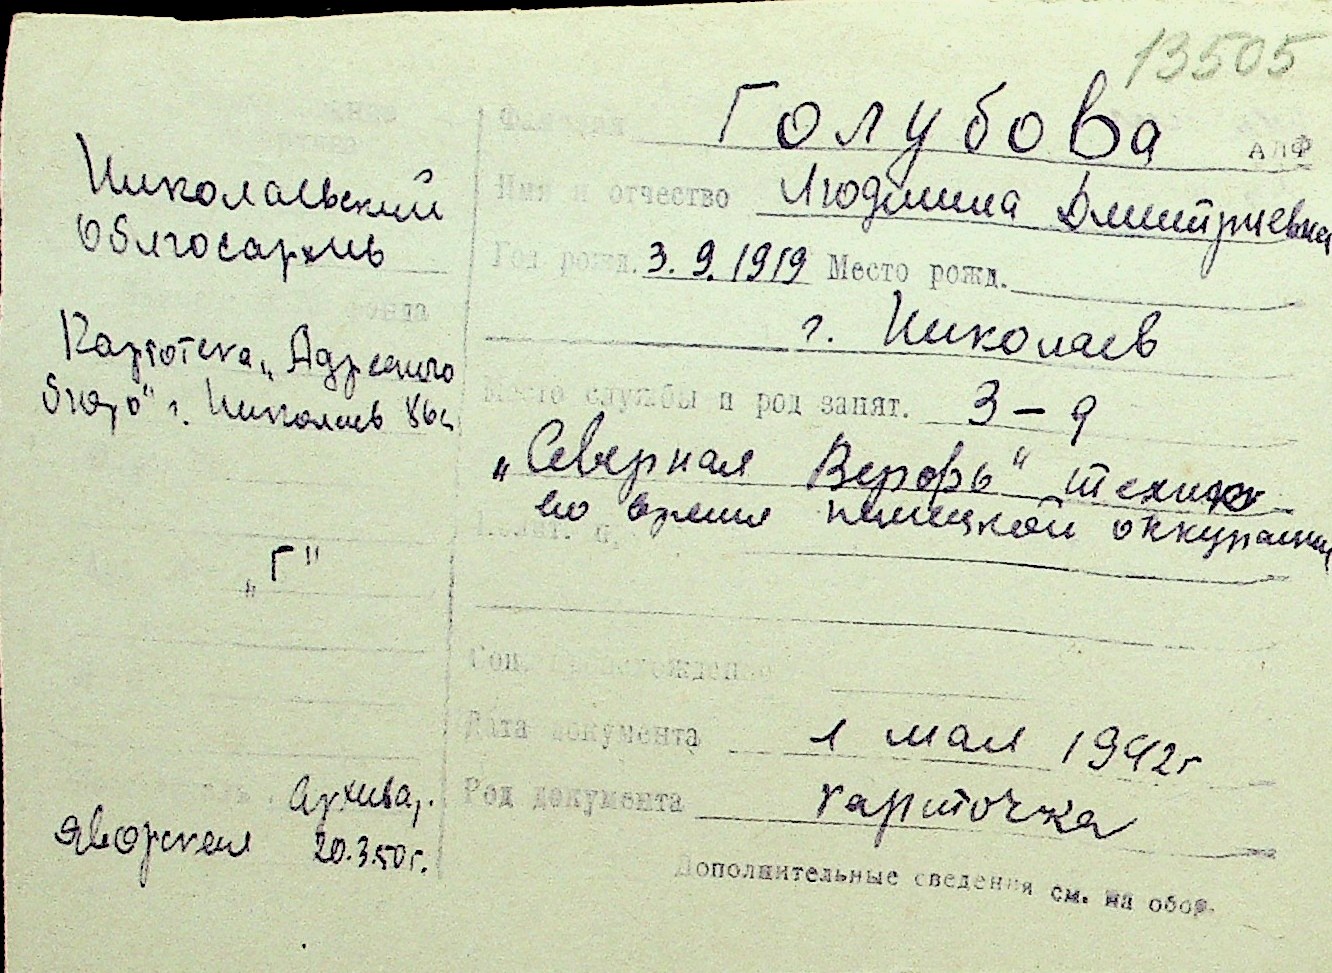 13505
Фамилия Голубова
АПФ
Имя и отчество Людмила Дмитриевна
Год рожд. 3.9.1919 Место рожд.
г. Николаев
Место службы и род занят. З-д
"Северная Верфь" техник
во время немецкой оккупации
Соц. происхождение
Дата документа 1 мая 1942г
Род документа карточка
Дополнительные сведения см. на обор.
Николаевский
Облгосархив
фонда
Картотека "Адресного
бюро" г. Николаев
"Г"
Архива,
Яворская 20.3.50г.